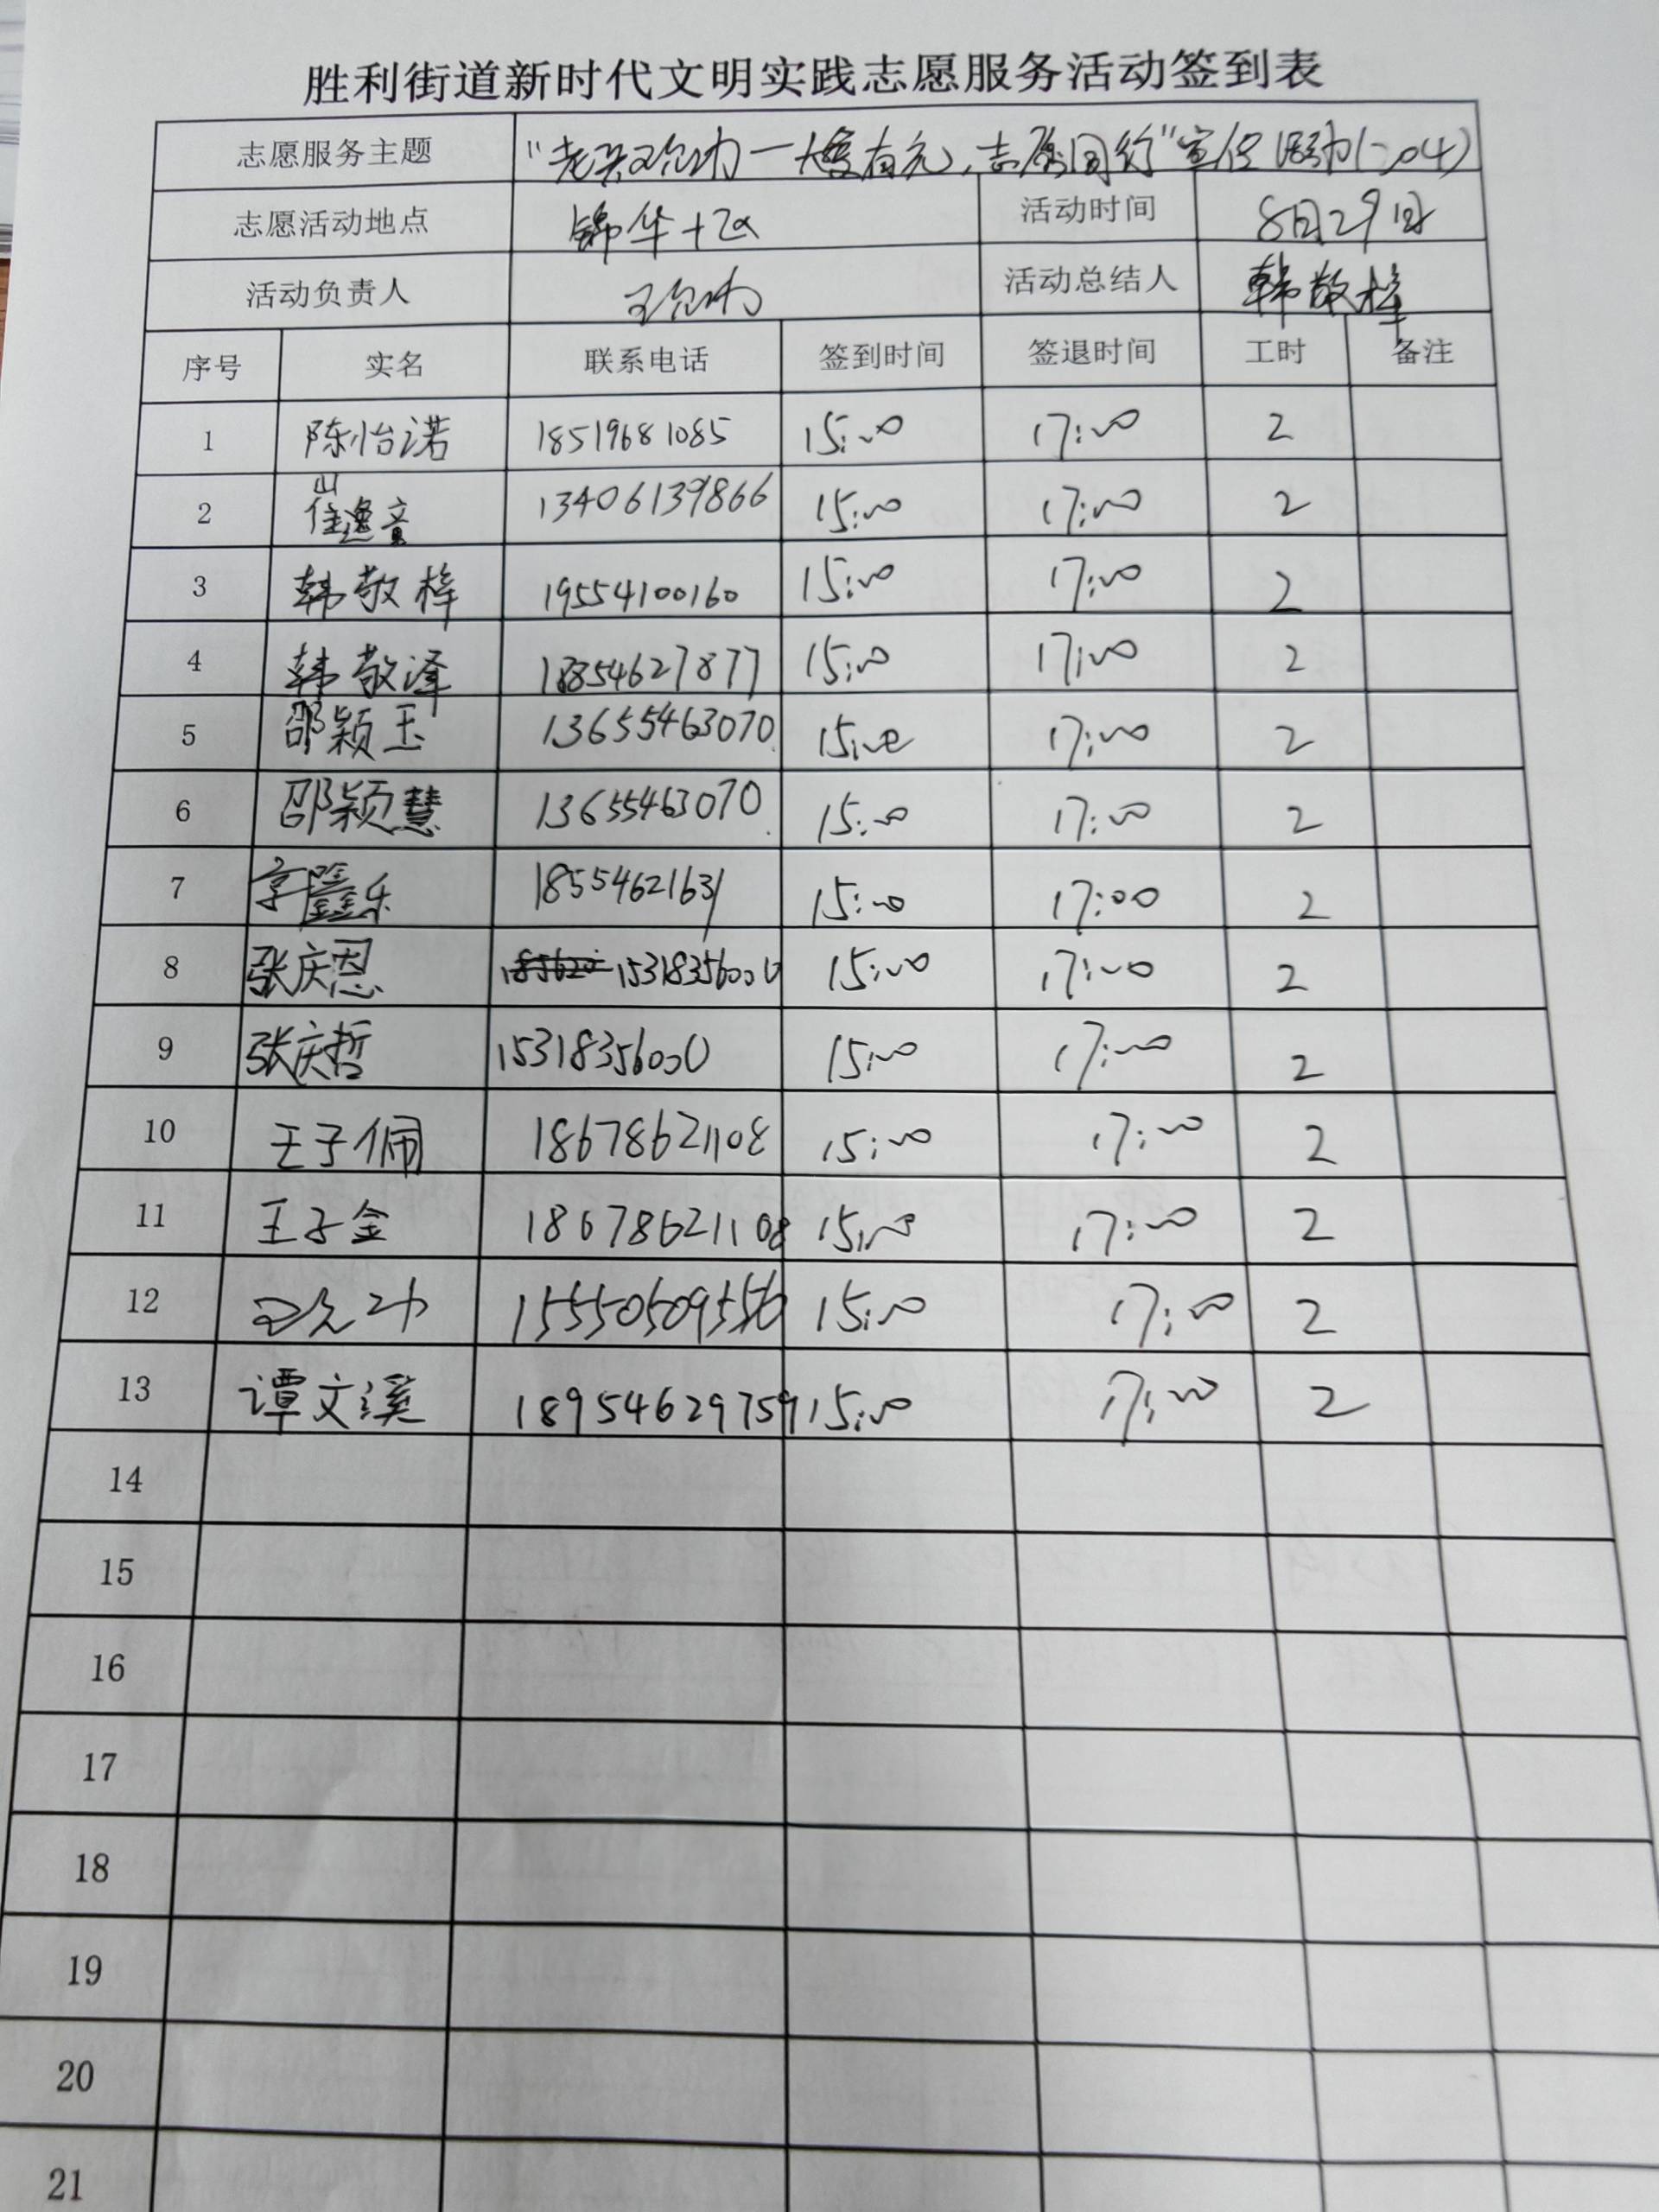 胜利街道新时代文明实践志愿服务活动签到表
志愿服务主题 志愿同行"宣传活动
志愿活动地点 锦华十区 活动时间 8月29日
活动负责人 活动总结人 韩敬梓
序号 实名 联系电话 签到时间 签退时间 工时 备注
1 陈怡诺 18519681085 15:00 17:00 2
2 13406139866 15:00 17:00 2
3 韩敬梓 19554100160 15:00 17:00 2
4 韩敬泽 18854627877 15:00 17:00 2
5 邵颖玉 13655463070 15:00 17:00 2
6 邵颖慧 13655463070 15:00 17:00 2
7 18554621631 15:00 17:00 2
8 张庆恩 15318356000 15:00 17:00 2
9 张庆哲 15318356000 15:00 17:00 2
10 王子佩 18678621108 15:00 17:00 2
11 王子金 18678621108 15:00 17:00 2
12 15550509556 15:00 17:00 2
13 谭文溪 18954629759 15:00 17:00 2
14
15
16
17
18
19
20
21